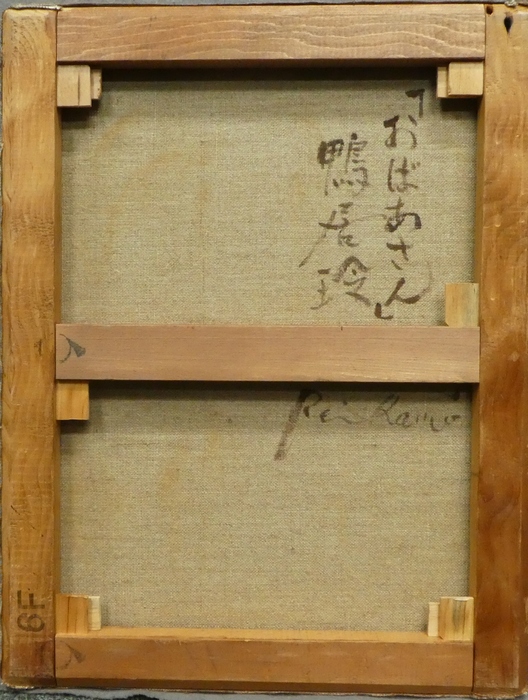 「おばあさん」
鴨居玲
Rei Kamoi
6F